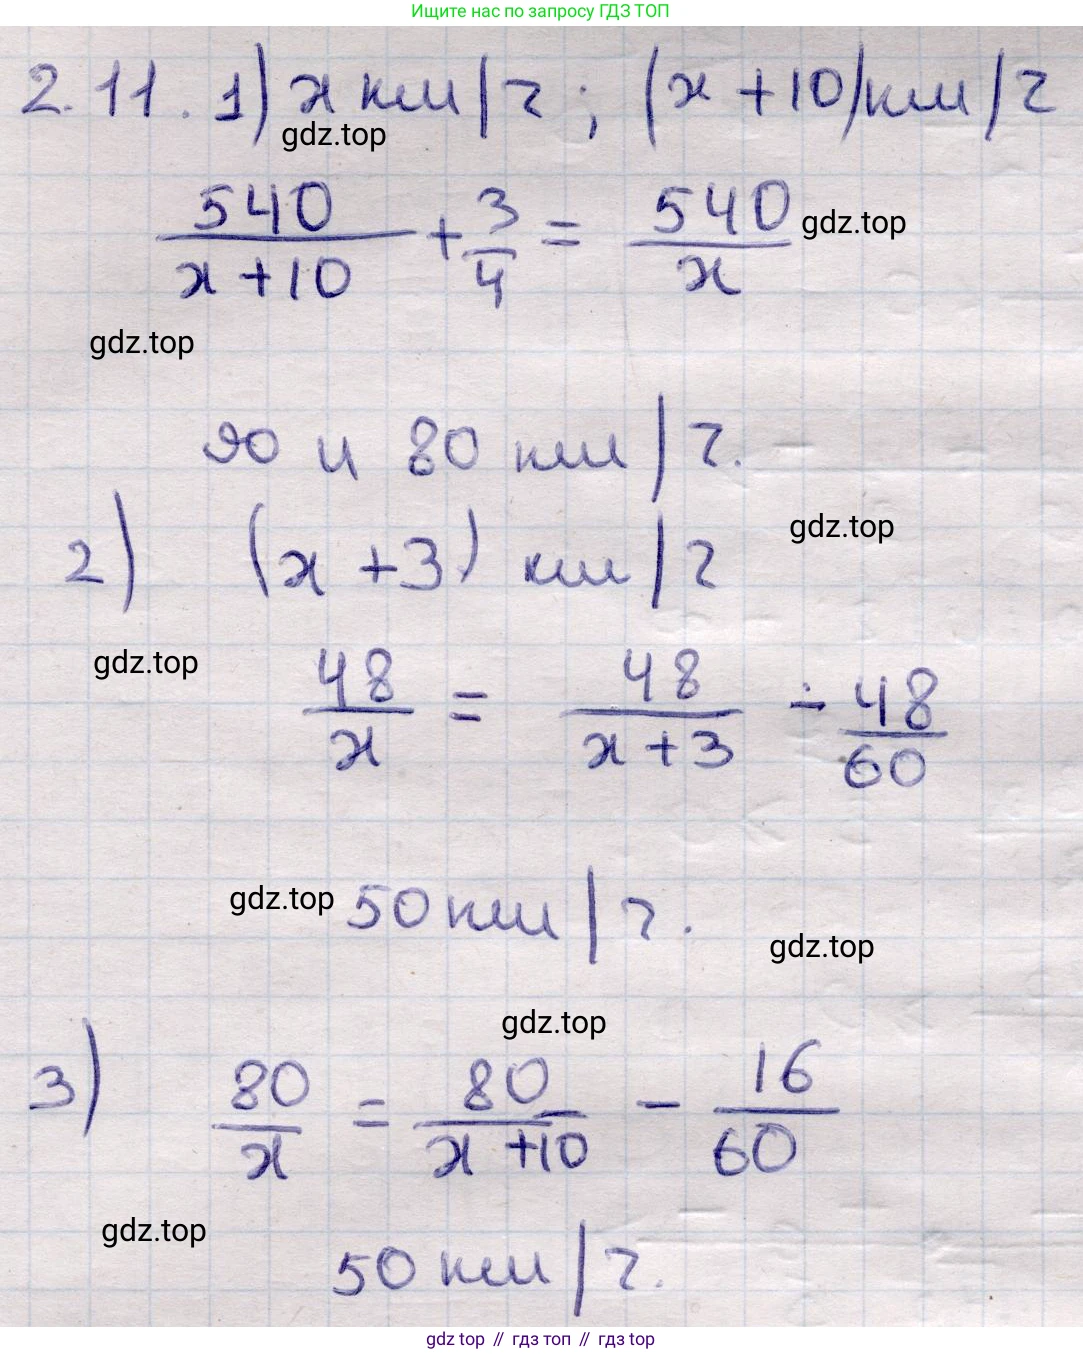 Ищите нас по запросу ГДЗ ТОП
2.11. 1) x км/ч ; (x + 10) км/ч
gdz.top
540/(x + 10) + 3/4 = 540/x
gdz.top
gdz.top
90 и 80 км/ч.
gdz.top
2) (x + 3) км/ч
gdz.top
48/x = 48/(x + 3) - 48/60
gdz.top
50 км/ч.
gdz.top
gdz.top
3) 80/x = 80/(x + 10) - 16/60
gdz.top
50 км/ч.
gdz top // гдз топ // gdz top